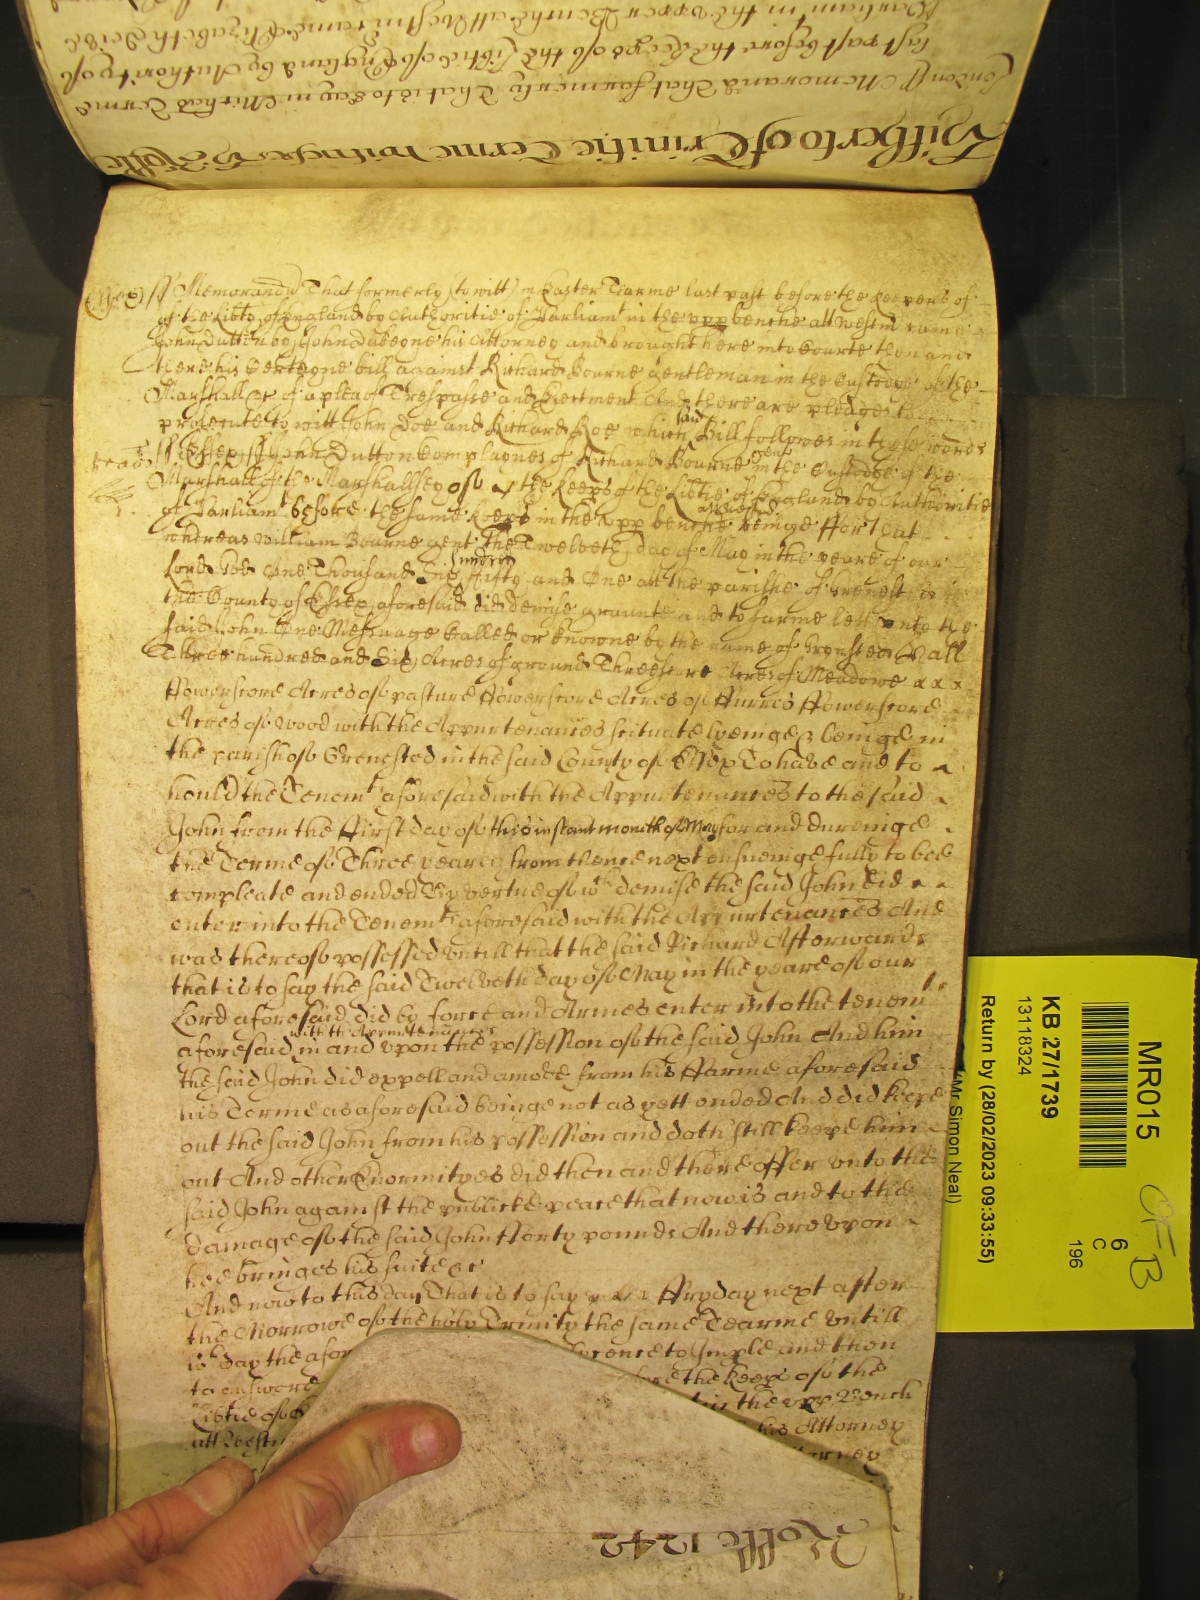 Parliamt in the upper Benche att Westm came Elizabeth
last past before the Keeps of the Libtie of England by Authority of
London ss Memorand That formerly That is to say in Michas Terme
Hitherto of Trinitie Terme witnes H Rolle
Essex ss Memorand That formerly (to witt) in Easter Tearme last past before the keepers of
of the Libty of England by Authoritie of Parliamt in the upp benche att Westm came
John Dutton by John Dabeyne his Attorney and brought here into Courte then and
there his Certayne bill against Richard Bourne gentleman in the Custodye of the
Marshall &c of a plea of Trespasse and Ejectment And there are pledges to
prosecute to witt John Doe and Richard Roe which said Bill followes in these words
ss Essex ss John Dutton Complaynes of Richard Bourne gent in the Custodye of the
Marshall of the Marshallsey of the Keeps of the Libtie of England by Authoritie
of Parliamt before the same Keeps in the upp benche att Westm beinge ffor that
whereas William Bourne gent the Twelveth day of May in the yeare of our
Lord God One Thousand Six hundred ffifty and One att the parishe of Grensted in
the County of Essex aforesaid did demise graunte and to farme lett unto the
said John One Messuage Called or knowne by the name of Grensted Hall
Three hundred and Six Acres of ground Threescore Acres of Meadowe x x x
ffowerscore Acres of pasture ffowerscore Acres of ffurres ffowerscore
Acres of wood with the Appurtenances scituate lyeinge & beinge in
the parish of Grensted in the said County of Essex To have and to
hould the Tenemts aforesaid with the Appurtenances to the said
John from the ffirst day of this instant month of May for and dureinge
the Terme of Three yeares from thence next ensueinge fully to bee
compleate and ended By vertue of wch demise the said John did
enter into the Tenemts aforesaid with the Appurtenances And
was thereof possessed untill that the said Richard Afterwards
that is to say the said Twelveth day of May in the yeare of our
Lord aforesaid did by force and Armes enter into the tenemts
aforesaid with th Appurtenances in and upon the possession of the said John And him
the said John did expell and amove from his ffarme aforesaid
his Terme as aforesaid beinge not as yett ended And did keepe
out the said John from his possession and doth still keepe him
out And other Enormityes did then and there offer unto the
said John against the publicke peace that now is and to the
damage of the said John fforty pounds And thereupon
hee bringes his suite &c
And now to this day That is to say ffryday next after
the Morrowe of the holy Trinity the same Tearme untill
wch day the afor licence to Imple and then
to answere fore the Keeps of the
Libtie of in the upp Bench
att Westm his Attorney
Attorney
Rolle 1242
MR015
KB 27/1739
13118324
6
C
196
Return by (28/02/2023 09:33:55)
(Mr Simon Neal)
OFB